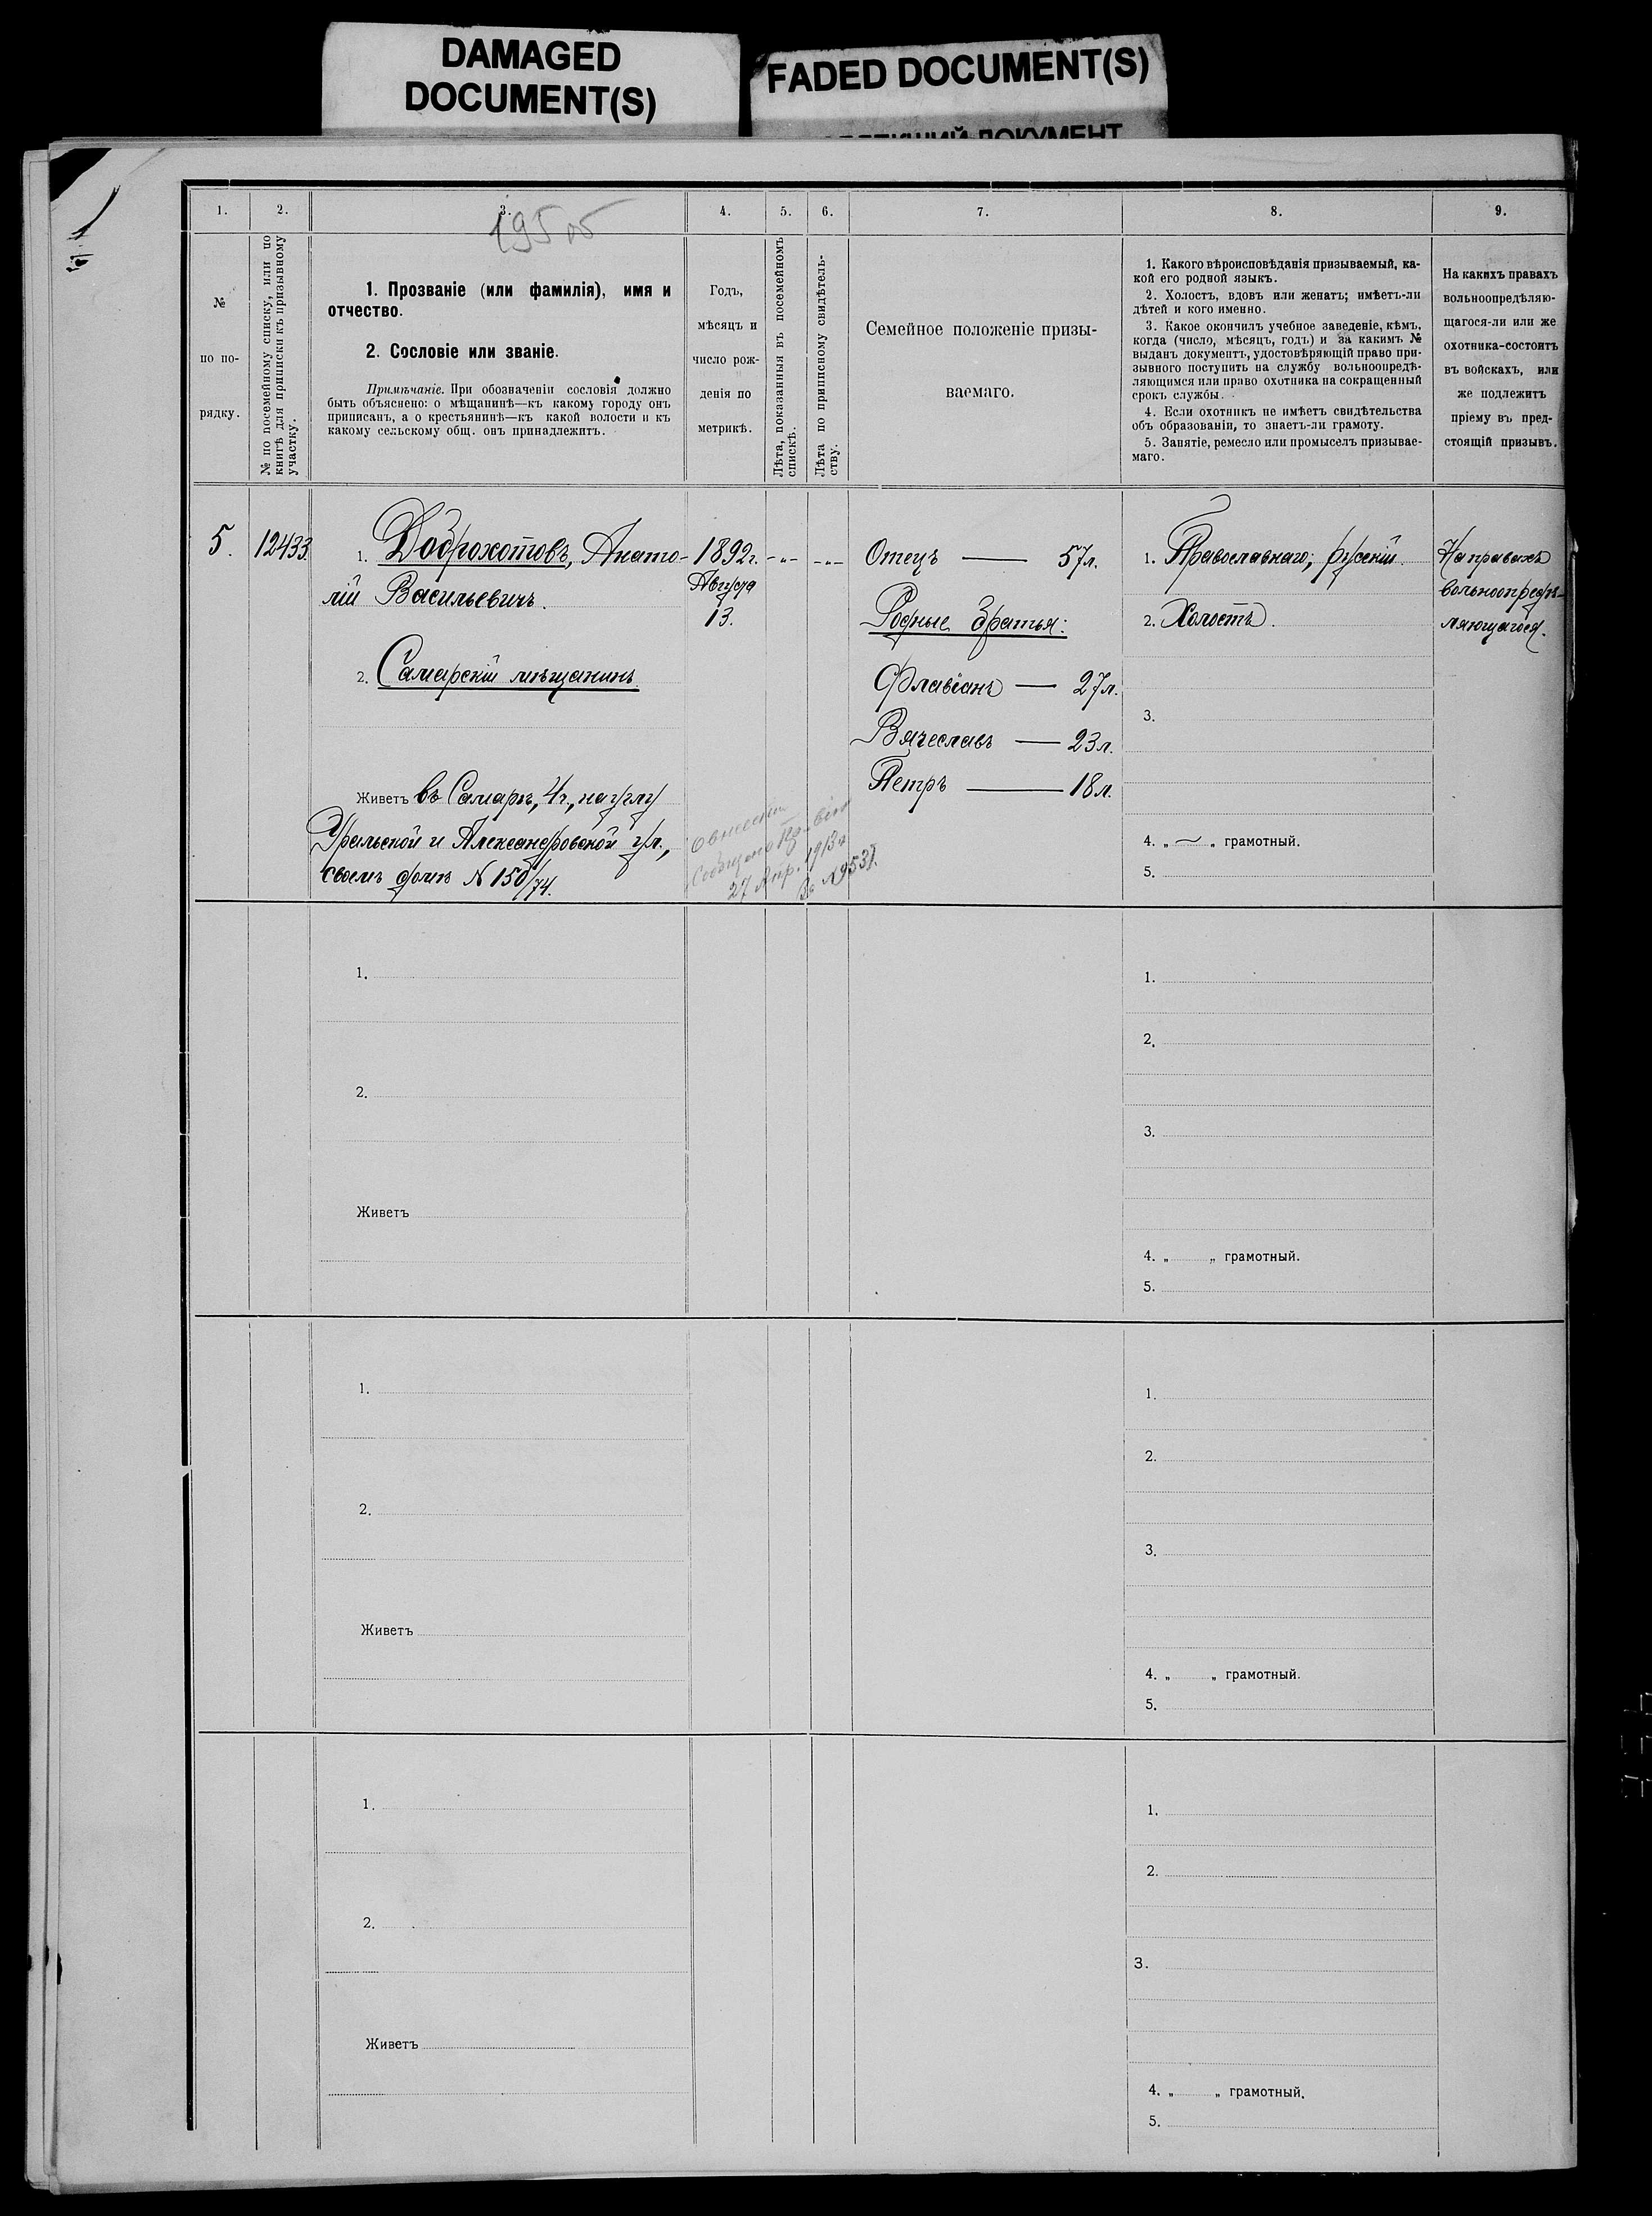 DAMAGED
DOCUMENT(S)
FADED DOCUMENT(S)
1.
2.
3.
4.
5.
6.
7.
8.
9.
195
№
по по-
рядку.
№ по посемейному списку, или по
книгѣ для приписки къ призывному
участку.
1. Прозваніе (или фамилія), имя и
отчество.
2. Сословіе или званіе.
Примѣчаніе. При обозначеніи сословія должно
быть объяснено: о мѣщанинѣ—къ какому городу онъ
приписанъ, а о крестьянинѣ—къ какой волости и къ
какому сельскому общ. онъ принадлежитъ.
Годъ,
мѣсяцъ и
число рож-
денія по
метрикѣ.
Лѣта, показанныя въ посемейномъ
спискѣ.
Лѣта по приписному свидѣтель-
ству.
Семейное положеніе призы-
ваемаго.
1. Какого вѣроисповѣданія призываемый, ка-
кой его родной языкъ.
2. Холостъ, вдовъ или женатъ; имѣетъ-ли
дѣтей и кого именно.
3. Какое окончилъ учебное заведеніе, кѣмъ,
когда (число, мѣсяцъ, годъ) и за какимъ №
выданъ документъ, удостовѣряющій право при-
зывного поступить на службу вольноопредѣ-
ляющимся или право охотника на сокращенный
срокъ службы.
4. Если охотникъ не имѣетъ свидѣтельства
объ образованіи, то знаетъ-ли грамоту.
5. Занятіе, ремесло или промыселъ призывае-
маго.
На какихъ правахъ
вольноопредѣляю-
щагося-ли или же
охотника-состоитъ
въ войскахъ, или
же подлежитъ
пріему въ пред-
стоящій призывъ.
5.
12433
1. Доброхотовъ, Анато-
лій Васильевичъ.
2. Самарскій мѣщанинъ.
Живетъ въ Самарѣ, 4ч., на углу
Уральской и Александровской ул.,
своемъ домѣ N 150/74.
1892г.
Августа
13.
-„-
-„-
Отецъ — 57л.
Родные братья:
Флавіанъ — 27л.
Вячеславъ — 23л.
Петръ — 18л.
1. Православнаго; русскій.
2. Холостъ.
3.
4. „ ~ „ грамотный.
5.
На правахъ
вольноопредѣ-
ляющагося.
27 Апр. 1913г
1.
2.
Живетъ
1.
2.
3.
4. „ „ грамотный.
5.
1.
2.
Живетъ
1.
2.
3.
4. „ „ грамотный.
5.
1.
2.
Живетъ
1.
2.
3.
4. „ „ грамотный.
5.